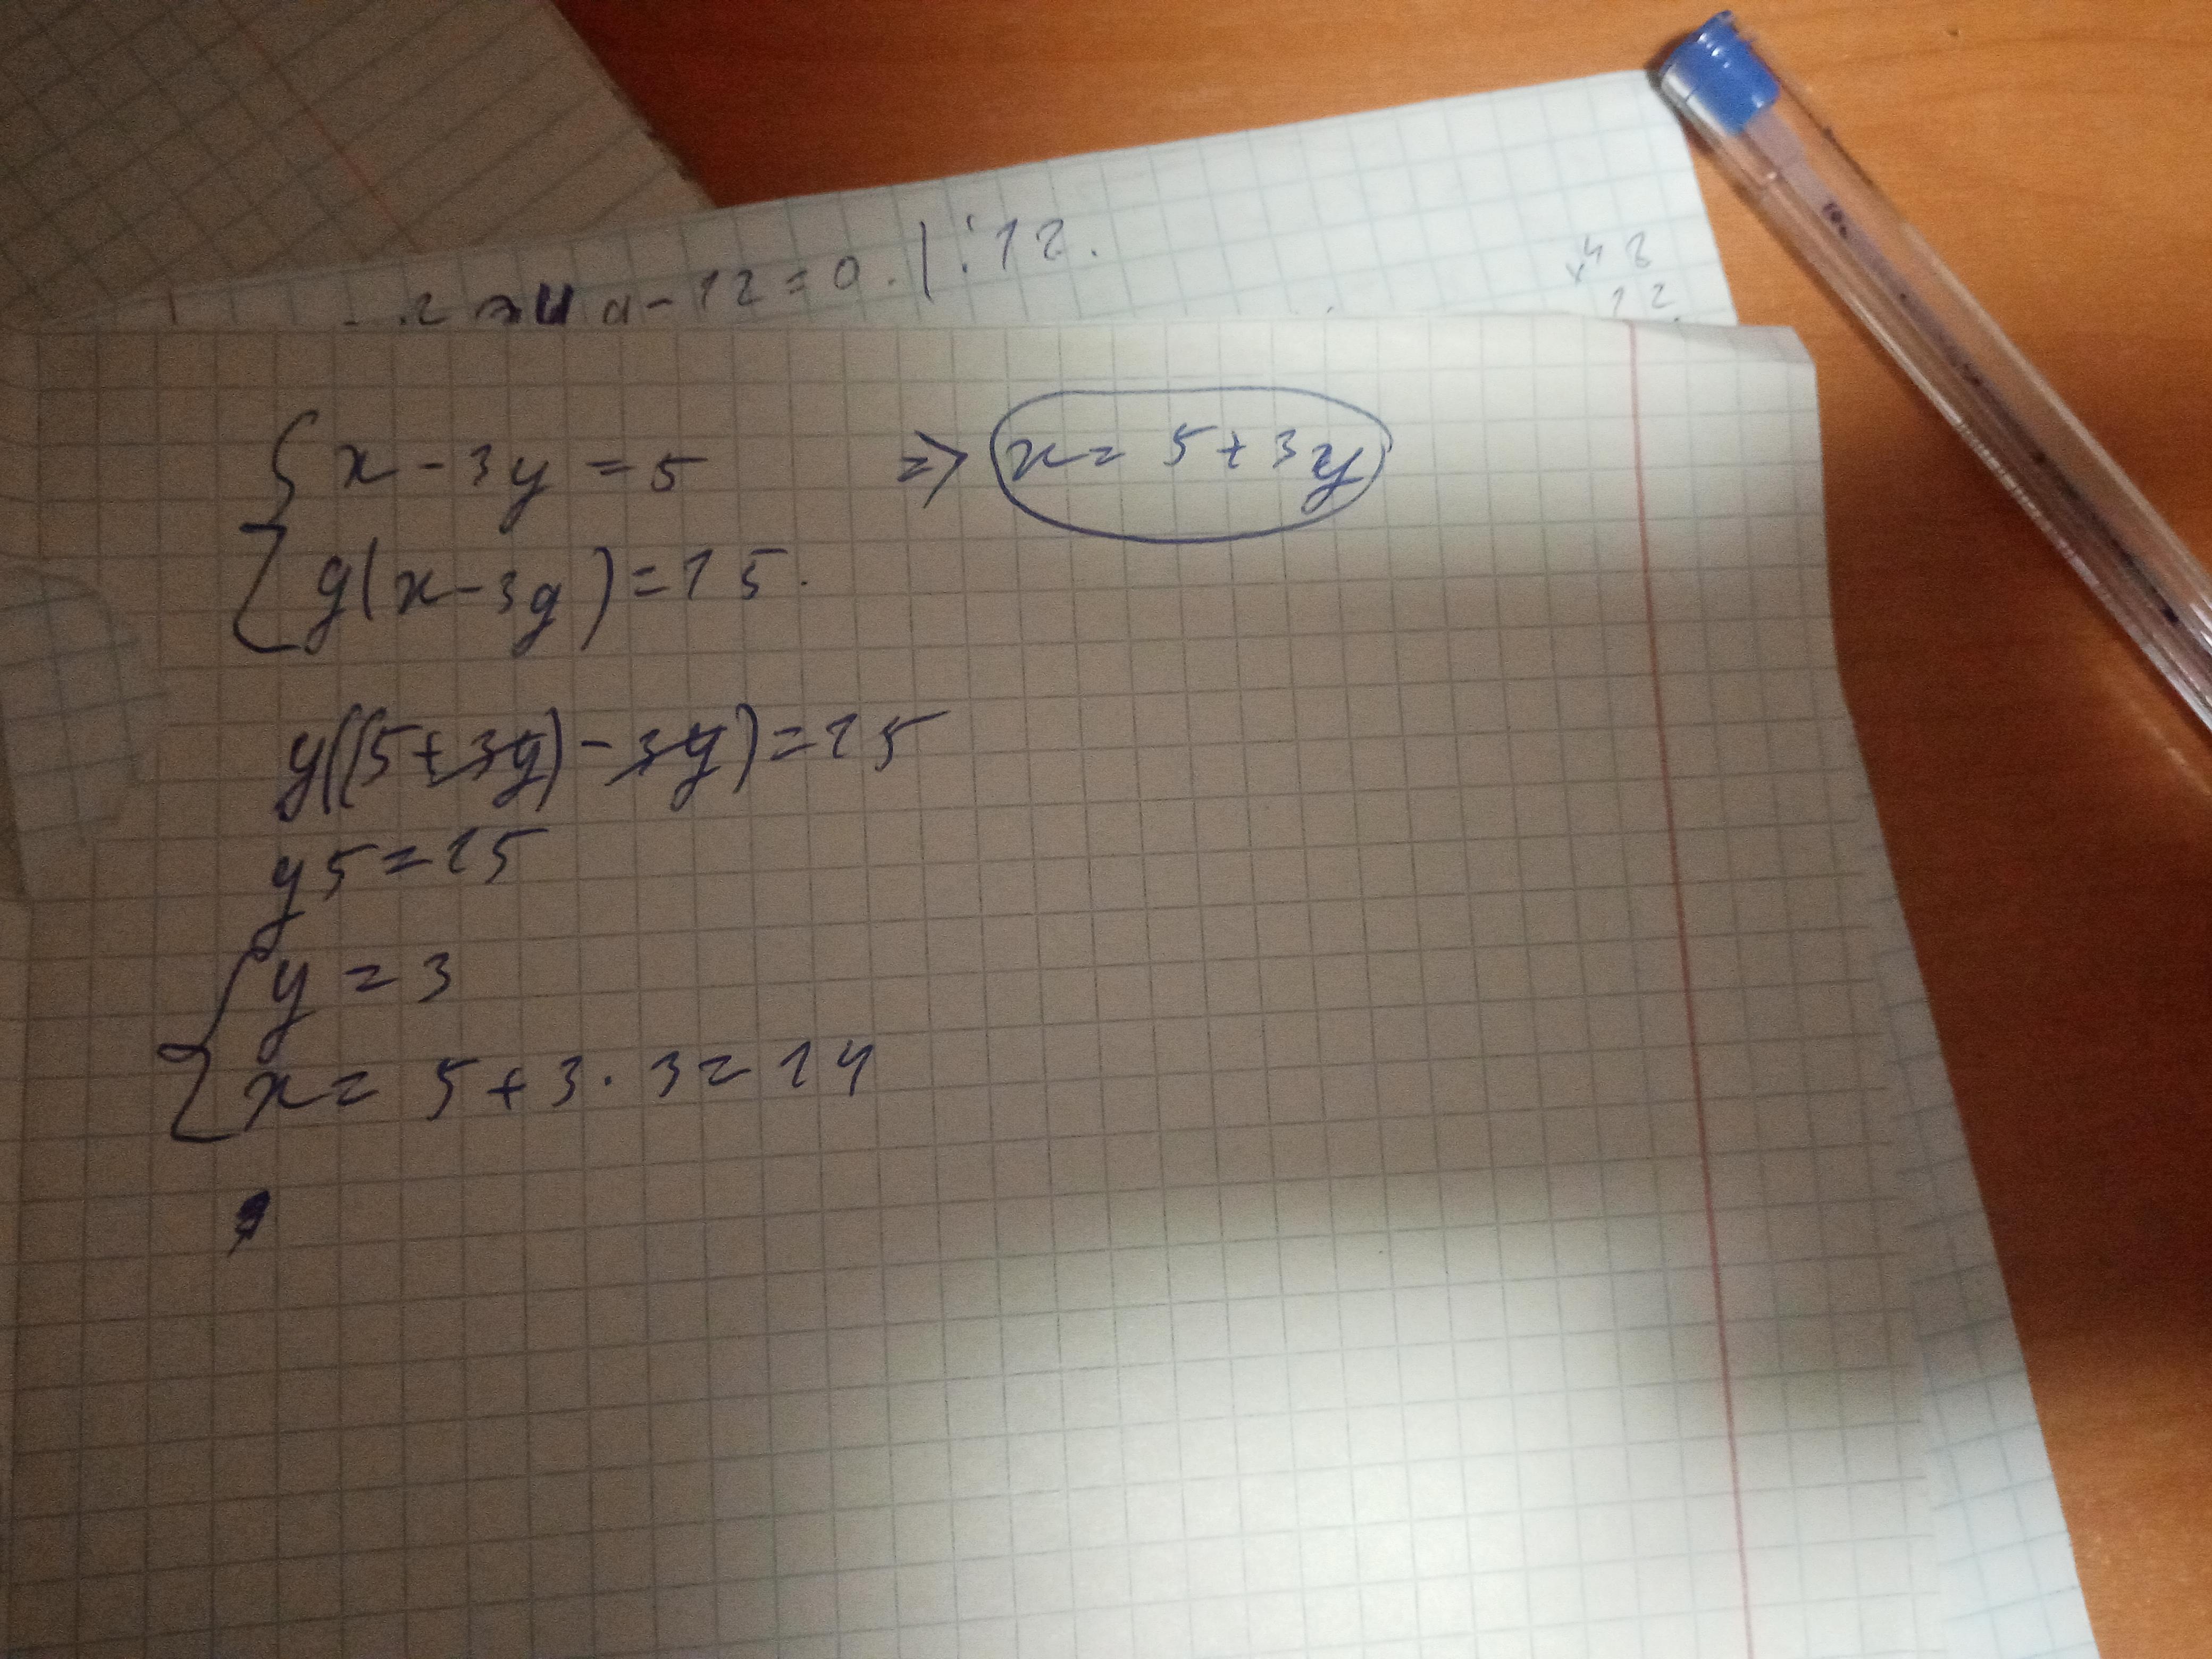 a-12=0. |:12.
48
12
x-3y=5 => x=5+3y
y(x-3y)=15.
y((5+3y)-3y)=15
y5=15
y=3
x=5+3·3=14